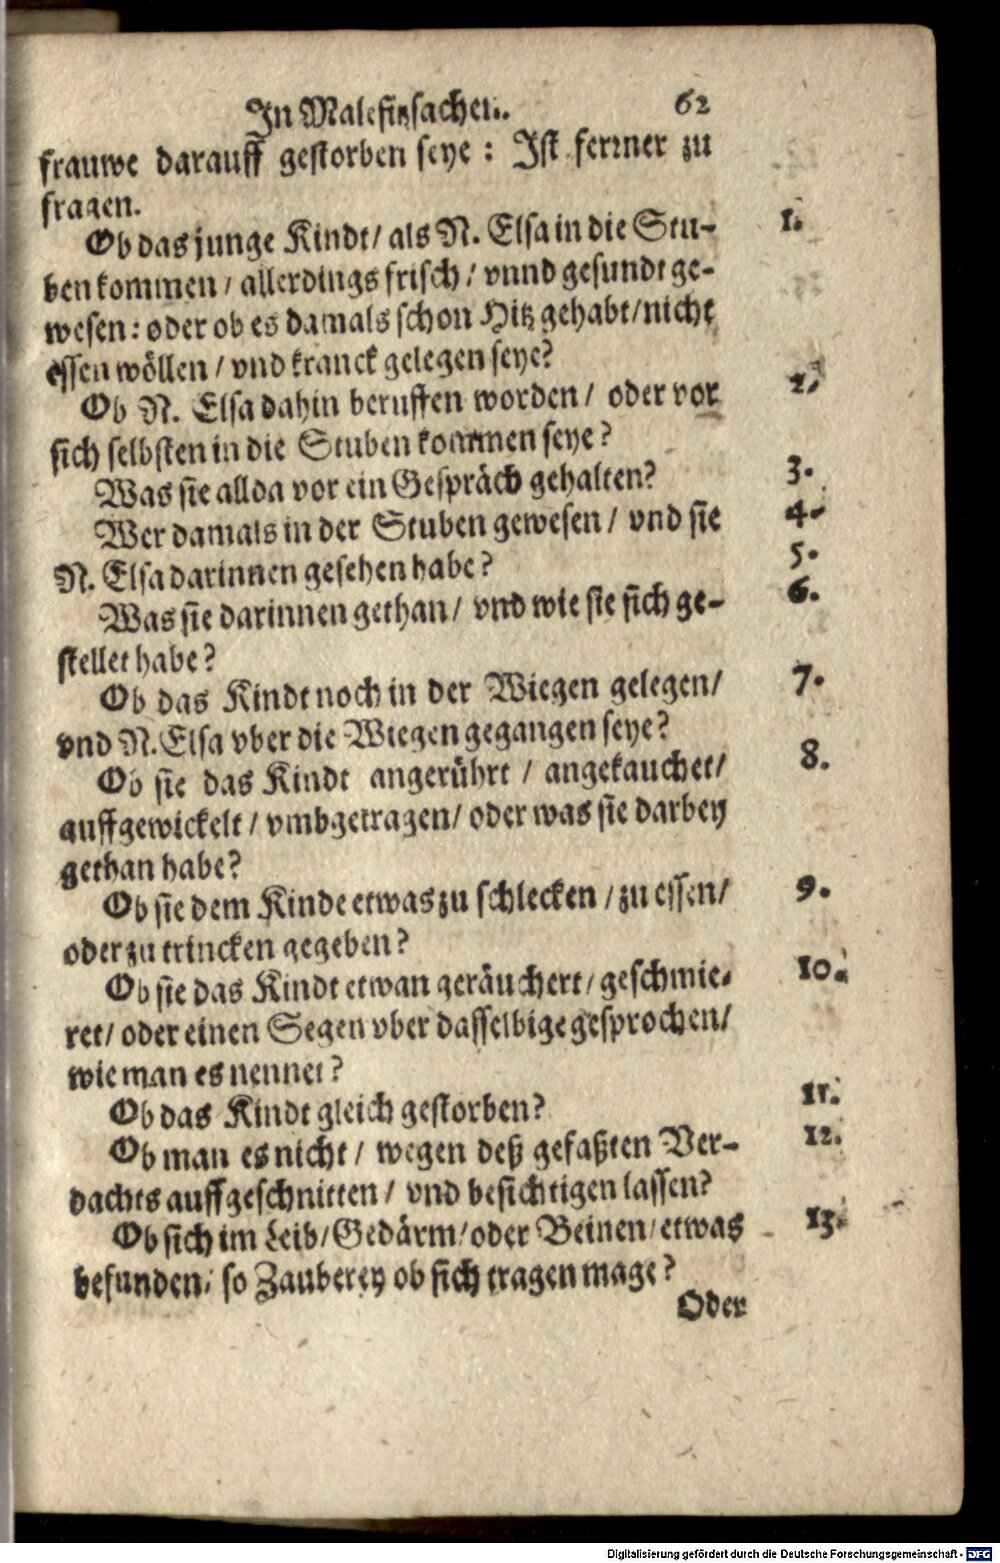 In Malefitzsachen. 62
frauwe darauff gestorben seye: Ist ferrner zu
fragen.
Ob das junge Kindt/ als N. Elsa in die Stu- 1.
ben kommen / allerdings frisch / vnnd gesundt ge-
wesen: oder ob es damals schon Hitz gehabt/ nicht
essen wöllen / vnd kranck gelegen seye?
Ob N. Elsa dahin beruffen worden / oder vor 2.
sich selbsten in die Stuben kommen seye?
Was sie allda vor ein Gespräch gehalten? 3.
Wer damals in der Stuben gewesen / vnd sie 4.
N. Elsa darinnen gesehen habe? 5.
Was sie darinnen gethan / vnd wie sie sich ge- 6.
stellet habe?
Ob das Kindt noch in der Wiegen gelegen/ 7.
vnd N. Elsa vber die Wiegen gegangen seye?
Ob sie das Kindt angerührt / angekauchet/ 8.
auffgewickelt / vmbgetragen/ oder was sie darbey
gethan habe?
Ob sie dem Kinde etwas zu schlecken / zu essen/ 9.
oder zu trincken gegeben?
Ob sie das Kindt etwan geräuchert/ geschmie- 10.
ret/ oder einen Segen vber dasselbige gesprochen/
wie man es nennet?
Ob das Kindt gleich gestorben? 11.
Ob man es nicht / wegen deß gefaßten Ver- 12.
dachts auffgeschnitten / vnd besichtigen lassen?
Ob sich im Leib/ Gedärm/ oder Beinen/ etwas 13.
befunden/ so Zauberey ob sich tragen mage?
Oder
Digitalisierung gefördert durch die Deutsche Forschungsgemeinschaft - DFG